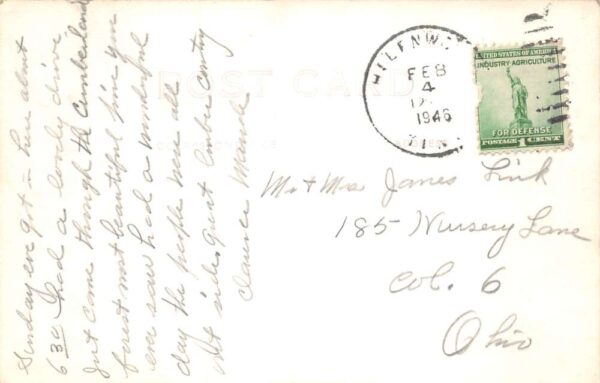 POST CARD
Sunday eve got in here about
6 30 had a lovely drive
Just came through the Cumberland
forest most beautiful pine you
ever saw had a wonderful
day the people here all
Mt sides great
country
Clarence Maude
HELENW
FEB
4
1946
UNITED STATES OF AMERICA
INDUSTRY-AGRICULTURE
FOR DEFENSE
POSTAGE 1 CENT
Mr & Mrs James Link
185 Nursery Lane
Col. 6
Ohio